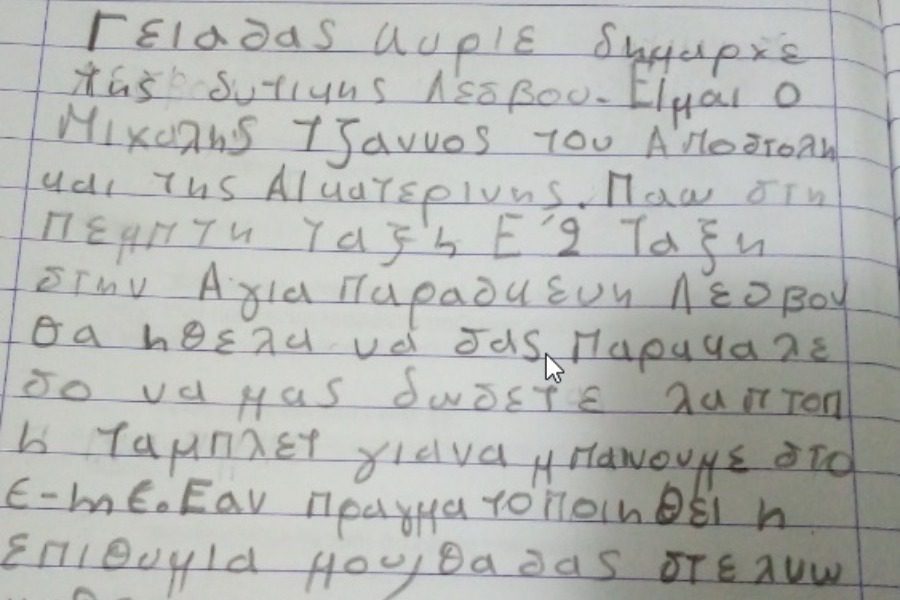 Γειασας κυριε δημαρχε
της δυτικης Λεσβου. Είμαι ο
Μιχαλης Τζαννος του Αποστολη
και της Αικατερινης. Παω στη
πεμπτη ταξη Ε'2 Ταξη
στην Αγια Παρασκευη Λεσβου
θα ηθελα να σας παρακαλε
σο να μας δωσετε λαπτοπ
η ταμπλετ για να μπαινουμε στο
e-me. Εαν πραγματοποιηθεί η
επιθυμια μου, θα σας στελνω